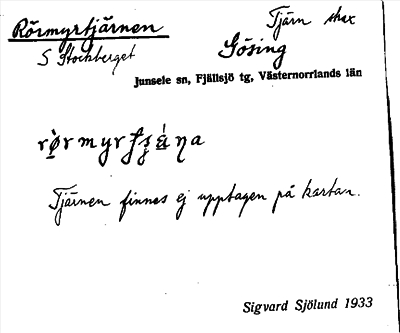 Rörmyrtjärnen
Tjärn
S Stockberget
Gösing
Junsele sn, Fjällsjö tg, Västernorrlands län
Tjärnen finnes ej upptagen på kartan.
Sigvard Sjölund 1933